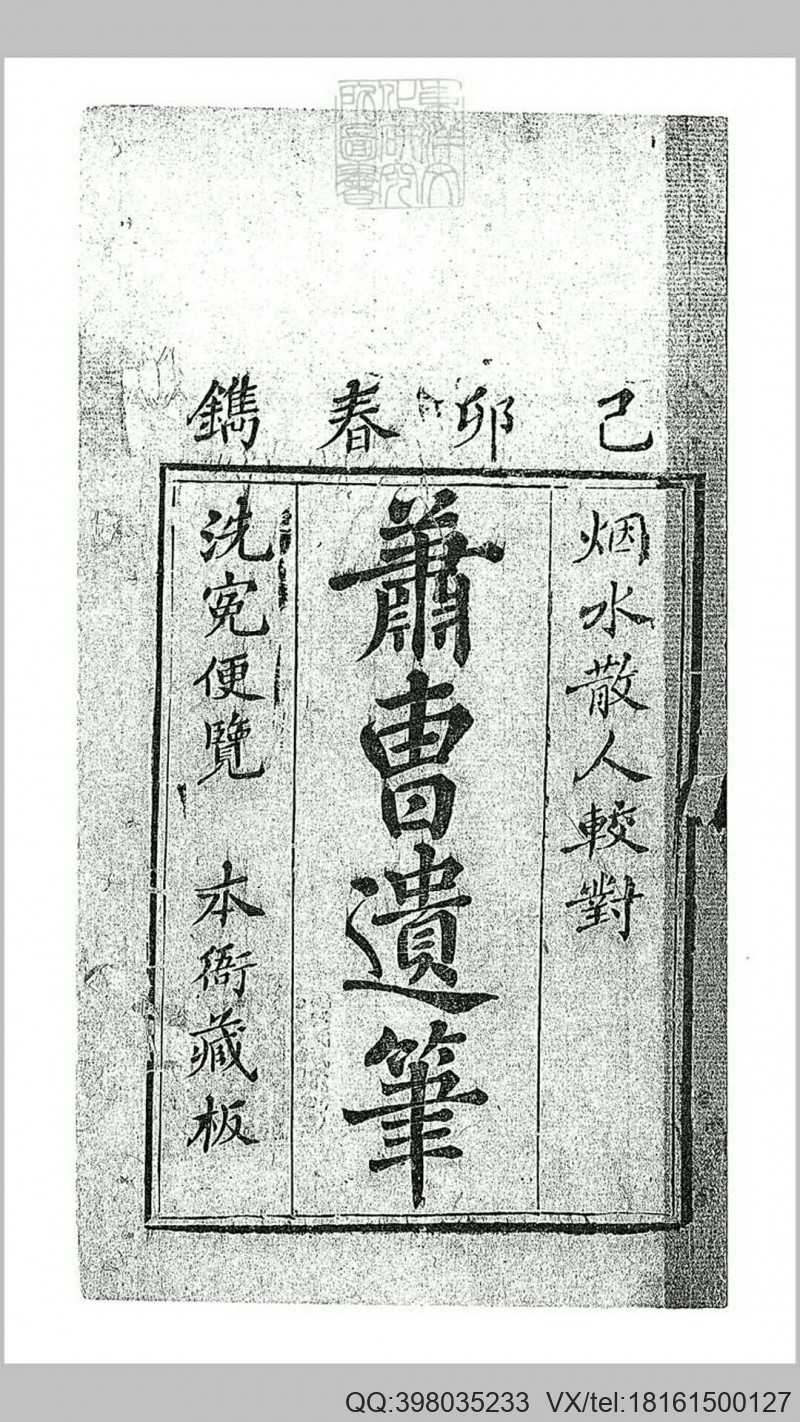 東洋文化研究所圖書
己卯春鐫
烟水散人較對
蕭曹遺筆
洗寃便覽 本衙藏板
QQ:398035233 VX/tel:18161500127